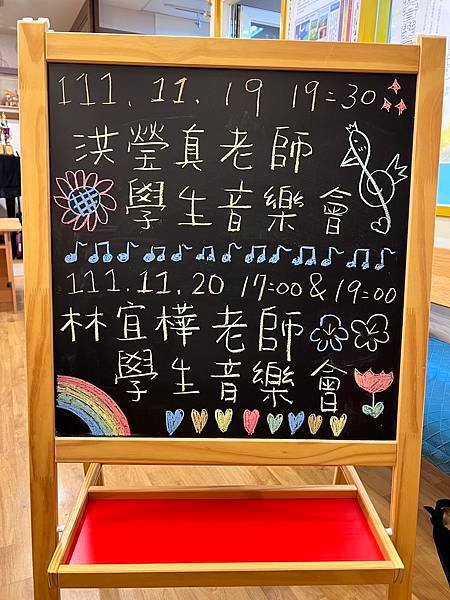 111.11.19 19:30
洪瑩真老師
學生音樂會
111.11.20 17:00 & 19:00
林宜樺老師
學生音樂會